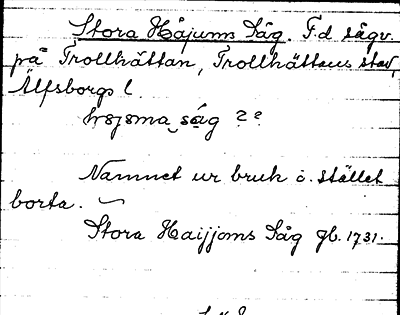 Stora Håjums Såg. F.d. sågv.
på Trollhättan, Trollhättans stad,
Älfsborgs l.
såg ? ?
Namnet ur bruk o. stället
borta.
Stora Haijjoms Såg gb. 1731.